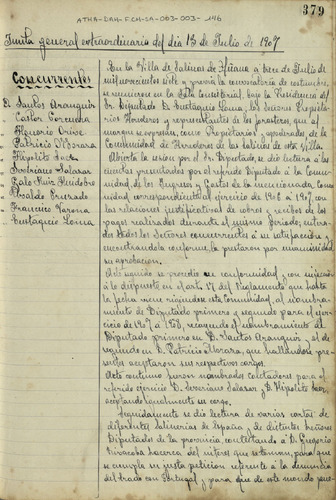 379
ATHA-DAH-FCH-SA-003-003-146
Junta general extraordinaria del dia 13 de Julio de 1907
Concurrentes
D. Santos Aranguiz
" Patricio Morara
" Hipolito Saez
" Severiano Salazar
" Galo Ruiz Huidobro
" Rosaldo Pesado
" Francisco Varona
" Eustaquio Loma
En la Villa de Salinas de Añana a trece de Julio de
mil novecientos siete y previa la convocatoria de costumbre
se reunieron en la Sala Consistorial, bajo la Residencia del
Sr. Diputado D. Eustaquio Loma, los Señores Propieta-
rios Herederos y representantes de los forasteros, que al
margen se expresan, como Propietarios y apoderados, de la
Comunidad de Herederos de las Salinas de esta Villa.
Abierta la sesion por el Sr. Diputado, se dio lectura a las
cuentas presentadas por el referido Diputado a la Comu-
nidad, de los Ingresos y Gastos de la mencionada Comu-
nidad, correspondiente al ejercicio de 1906 a 1907, con
las relaciones justificativas de cobros y recibos de los
pagos realizados durante el mismo periodo; entera-
dos todos los Señores concurrentes a su satisfaccion y
encontrandola conforme, la prestaron por unanimidad
su aprobacion.
Acto seguido se procedio de conformidad, con sujecion
a lo dispuesto en el art. 17 del Reglamento que hasta
la fecha viene rigiendo esta Comunidad, al nombra-
miento de Diputado primero y segundo para el ejer-
cicio de 1907 a 1908, recayendo el nombramiento de
Diputado primero en D. Santos Aranguiz, y el de
segundo en D. Patricio Morara, que hallandose pre-
sentes aceptaron sus respectivos cargos.
Acto continuo fueron nombrados Contadores para el
referido ejercicio D. Severiano Salazar y D. Hipolito Saez
aceptando igualmente su cargo.
Seguidamente se dio lectura de varias cartas de
diferentes Salinerias de España y de distintos Señores
Diputados de la provincia contestando a D. Gregorio
hacerca del interes que toman, para que
se cumpla su justa peticion referente a la denuncia
del tratado con Portugal y para que de este modo puede